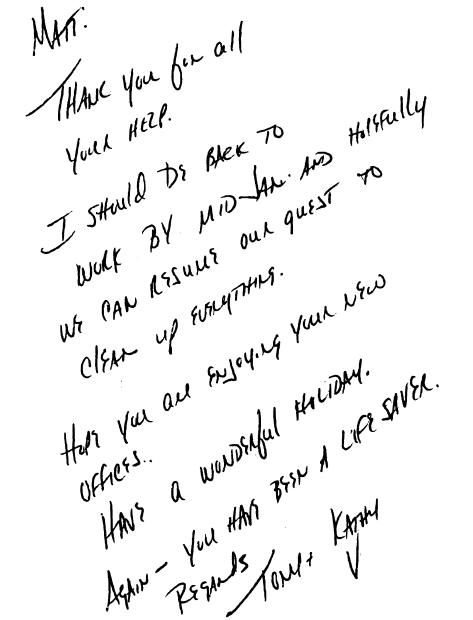 MATT.
THANK YOU for all
YOUR HELP.
I SHOULD BE BACK TO
WORK BY MID-JAN. AND HOPEfully
WE CAN RESUME OUR QUEST TO
CLEAN UP EVERYTHING.
HOPE YOU ARE ENJOYING YOUR NEW
OFFICES..
HAVE A WONDERFUL HOLIDAY.
AGAIN - YOU HAVE BEEN A LIFE SAVER.
REGARDS
TONY + KATHY